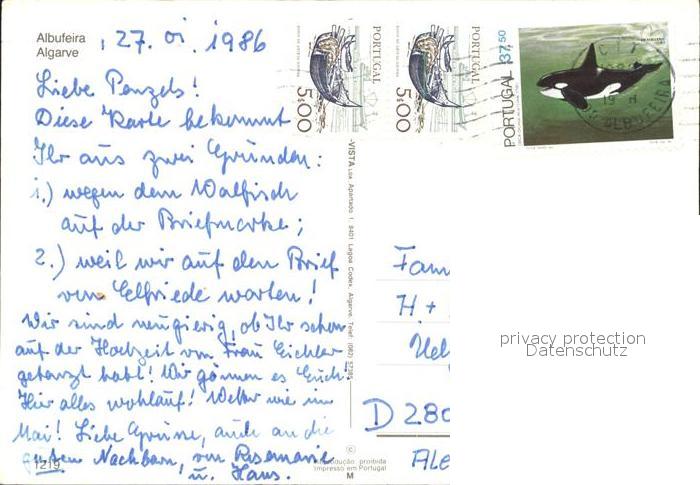 Albufeira
Algarve
, 27. 01. 1986
Liebe Penzels!
Diese Karte bekommt
Ihr aus zwei Gründen:
1.) wegen dem Walfisch
auf der Briefmarke;
2.) weil wir auf den Brief
von Elfriede warten!
Wir sind neugierig, ob Ihr schon
auf der Hochzeit von Frau Eichler
getanzt habt! Wir gönnen es Euch!
Hier alles wohlauf! Wetter wie im
Mai! Liebe Grüsse, auch an die
guten Nachbarn, von Rosemarie
u. Hans.
1219
PORTUGAL
5$00
PORTUGAL
5$00
PORTUGAL 37,50
ALBUFEIRA
-VISTA Lda. Apartado 1 8401 Lagoa Codex, Algarve, Telef. (082) 57365
Fam
H +
D 280
ALE
©
Reprodução proibida
Impresso em Portugal
M
privacy protection
Datenschutz